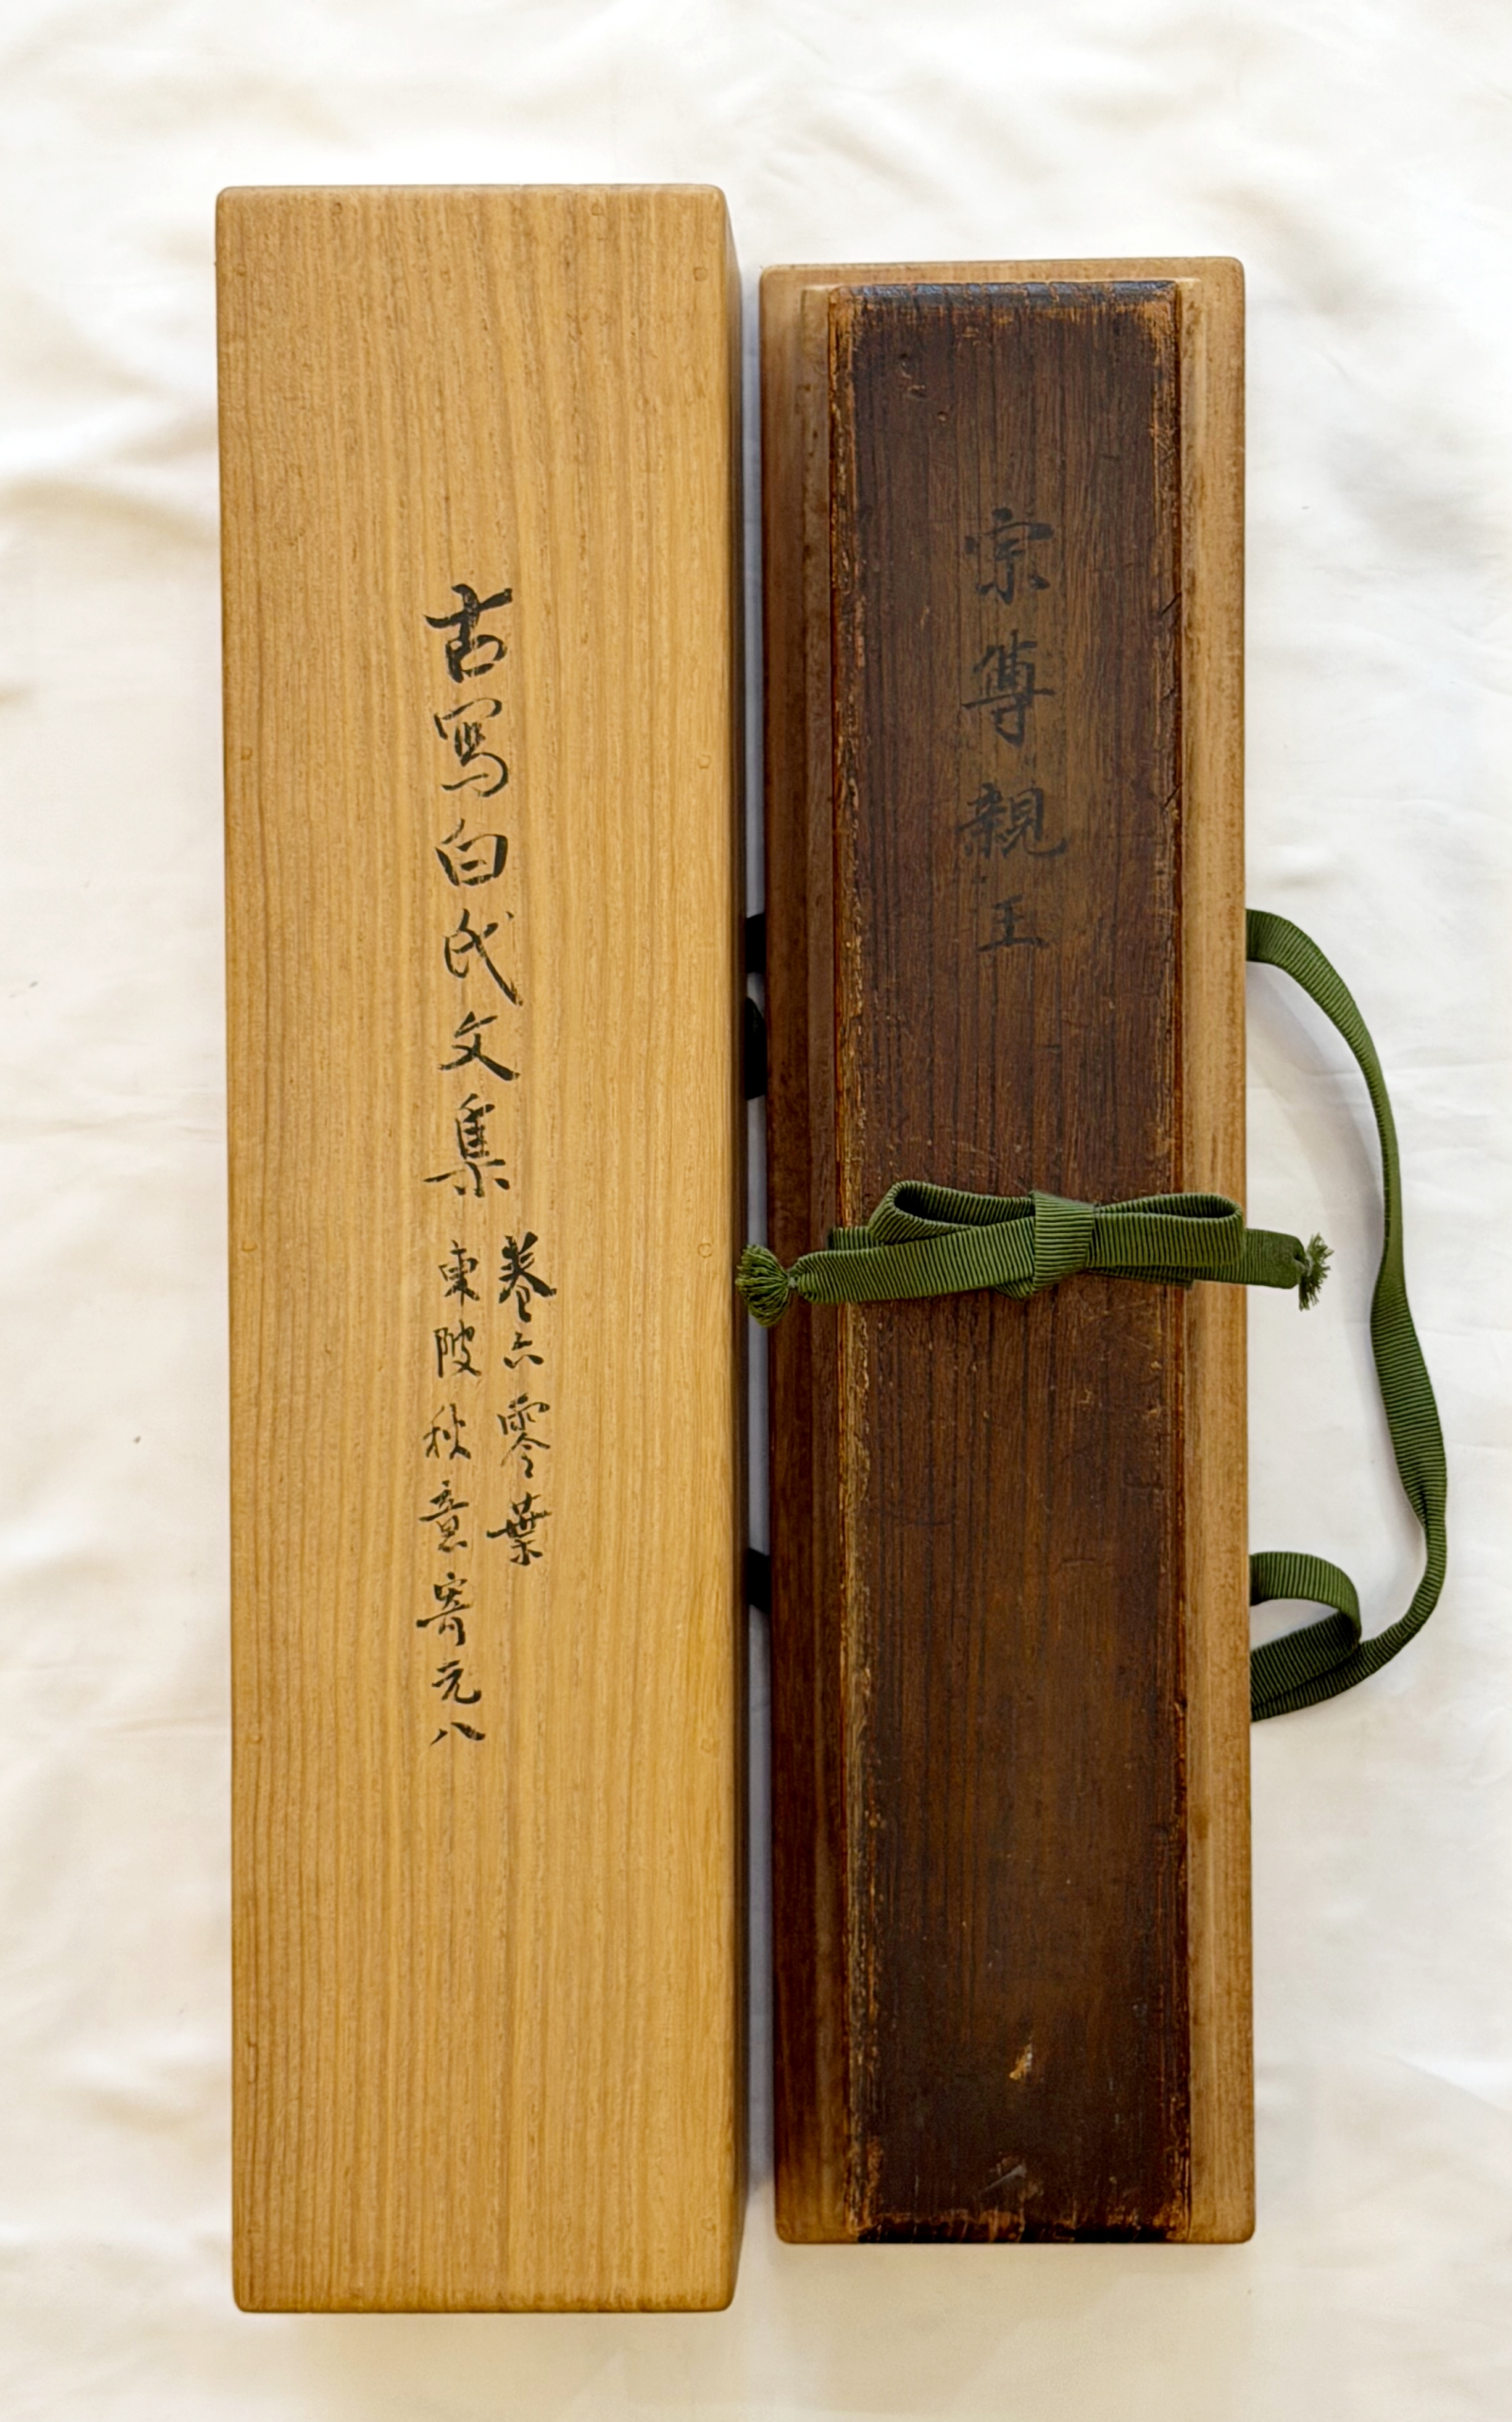 宗尊親王
古寫白氏文集
卷六零葉
東陂秋意寄元八